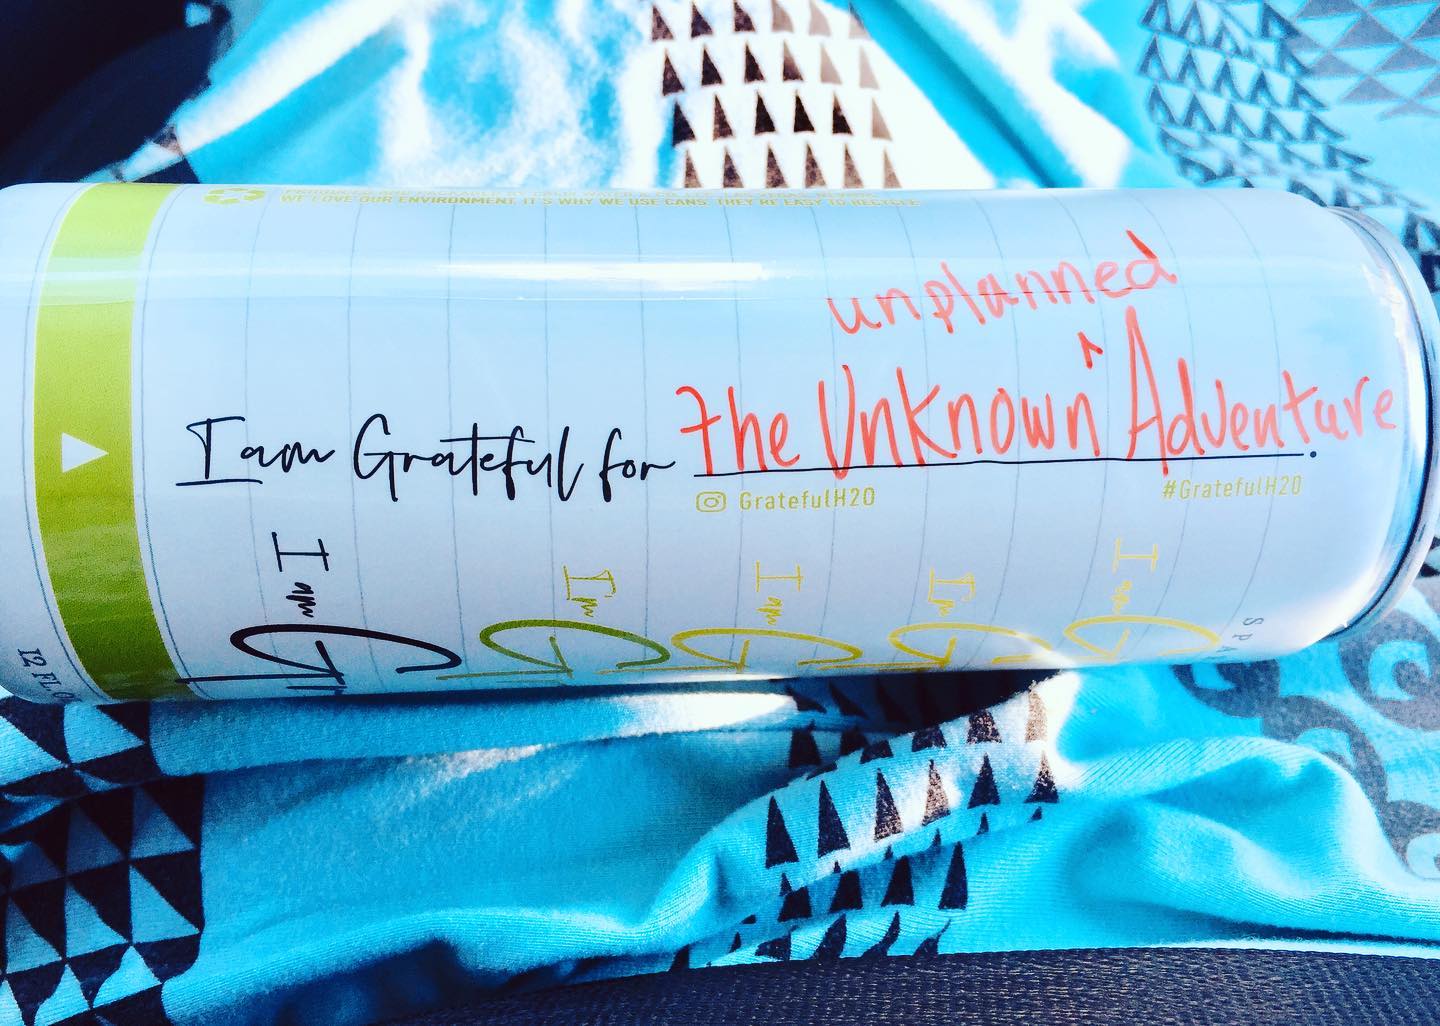 WE LOVE OUR ENVIRONMENT IT'S WHY WE USE CANS THEY'RE EASY TO RECYCLE
unplanned
I am Grateful for the Unknown ^ Adventure.
GratefulH2O #GratefulH2O
I am I'm I am I'm I am
12 FL O